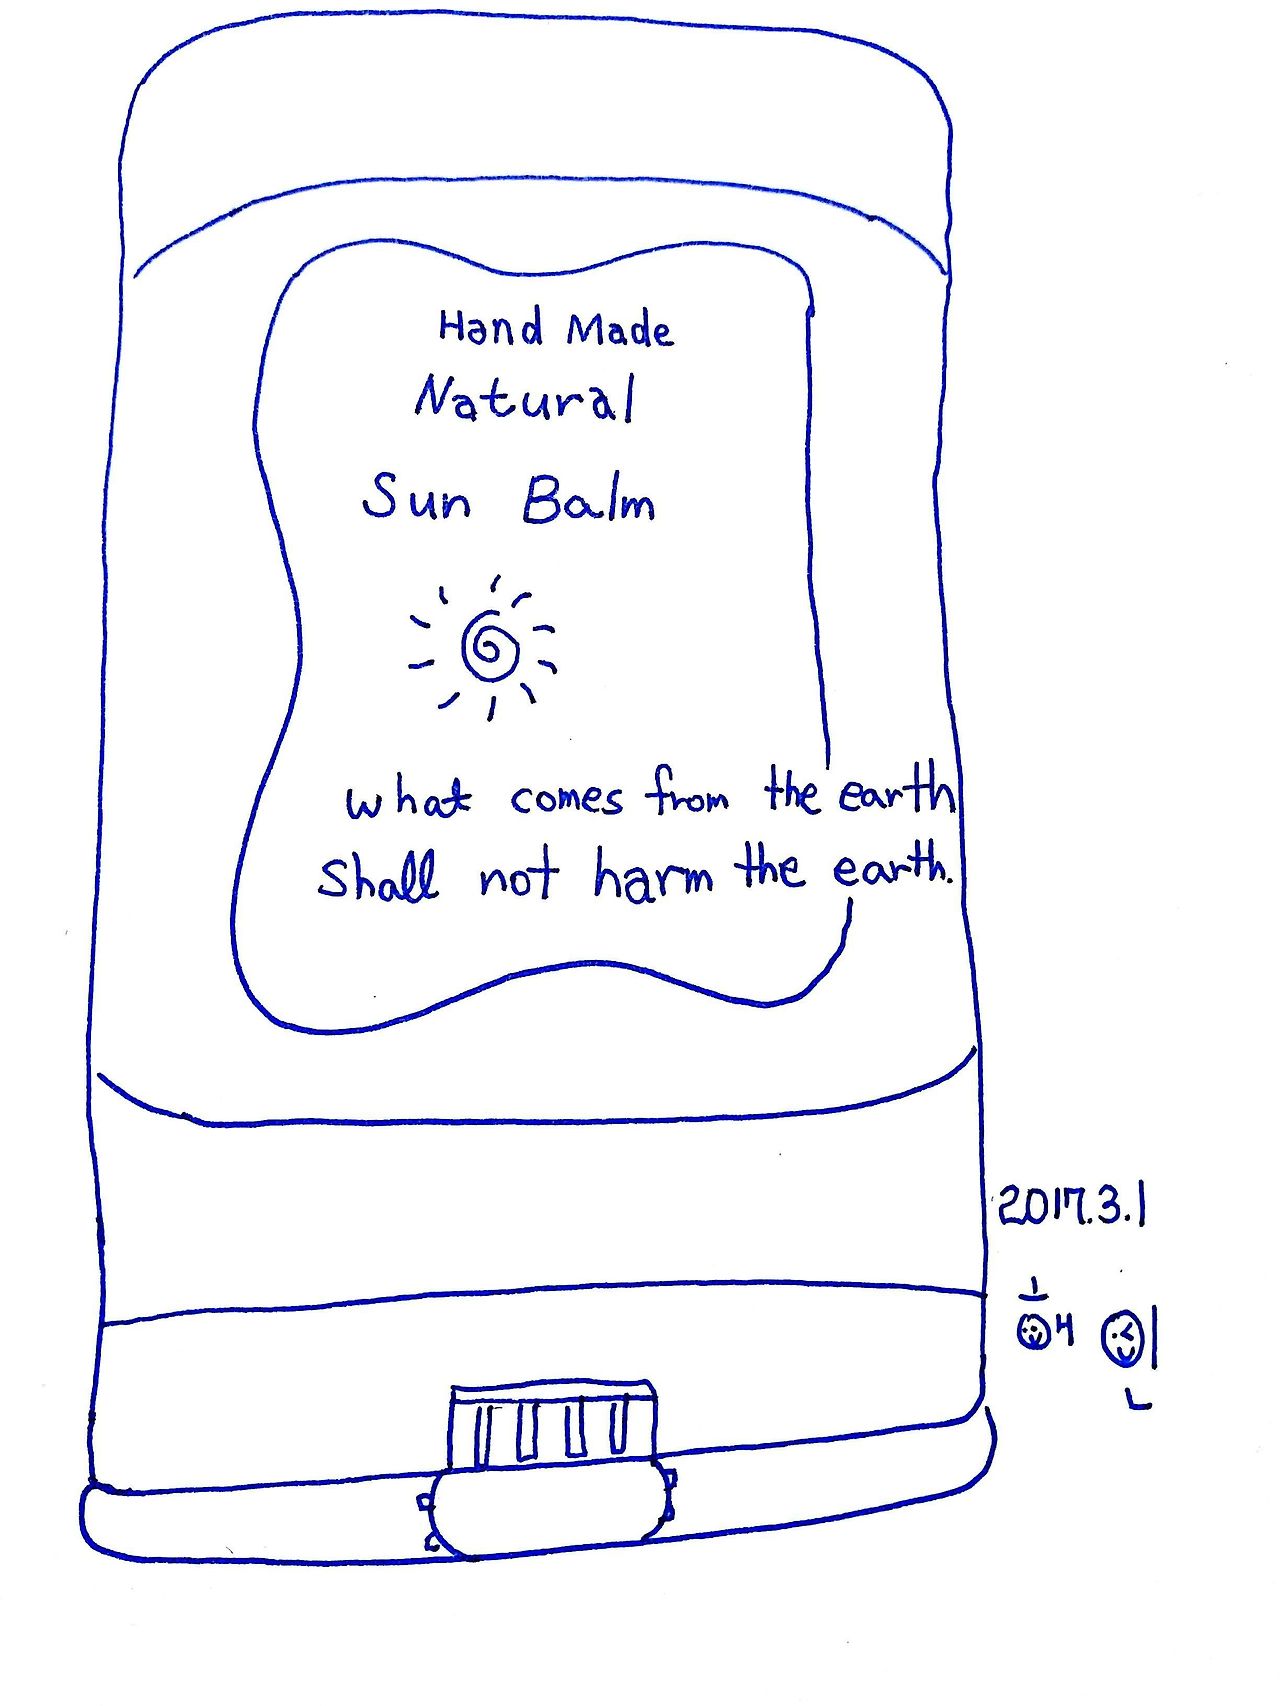 Hand Made
Natural
Sun Balm
what comes from the earth
shall not harm the earth.
2017.3.1